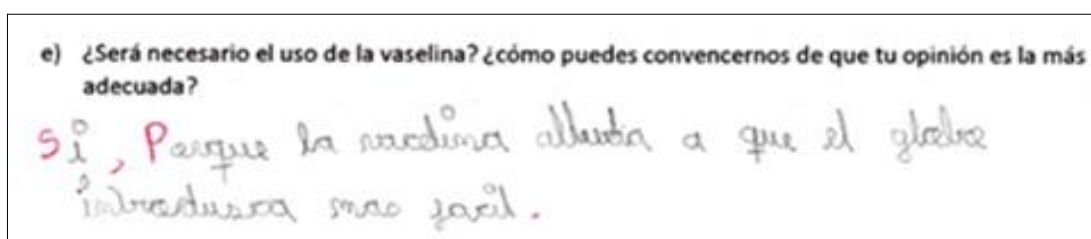 e) ¿Será necesario el uso de la vaselina? ¿cómo puedes convencernos de que tu opinión es la más
adecuada?
Si, Porque la a que el globo
introdusca mas facil.